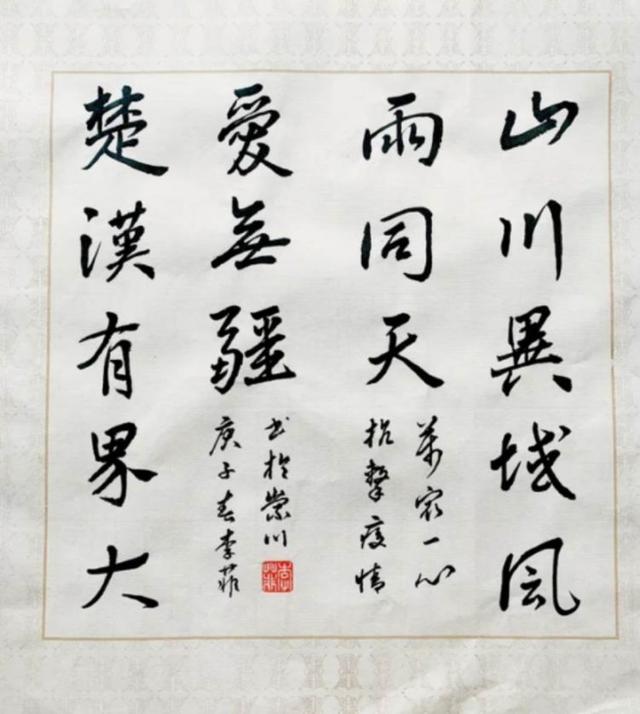 山川異域風
雨同天
萬衆一心
抗擊疫情
楚漢有界大
愛無疆
庚子春李菲
书於崇川